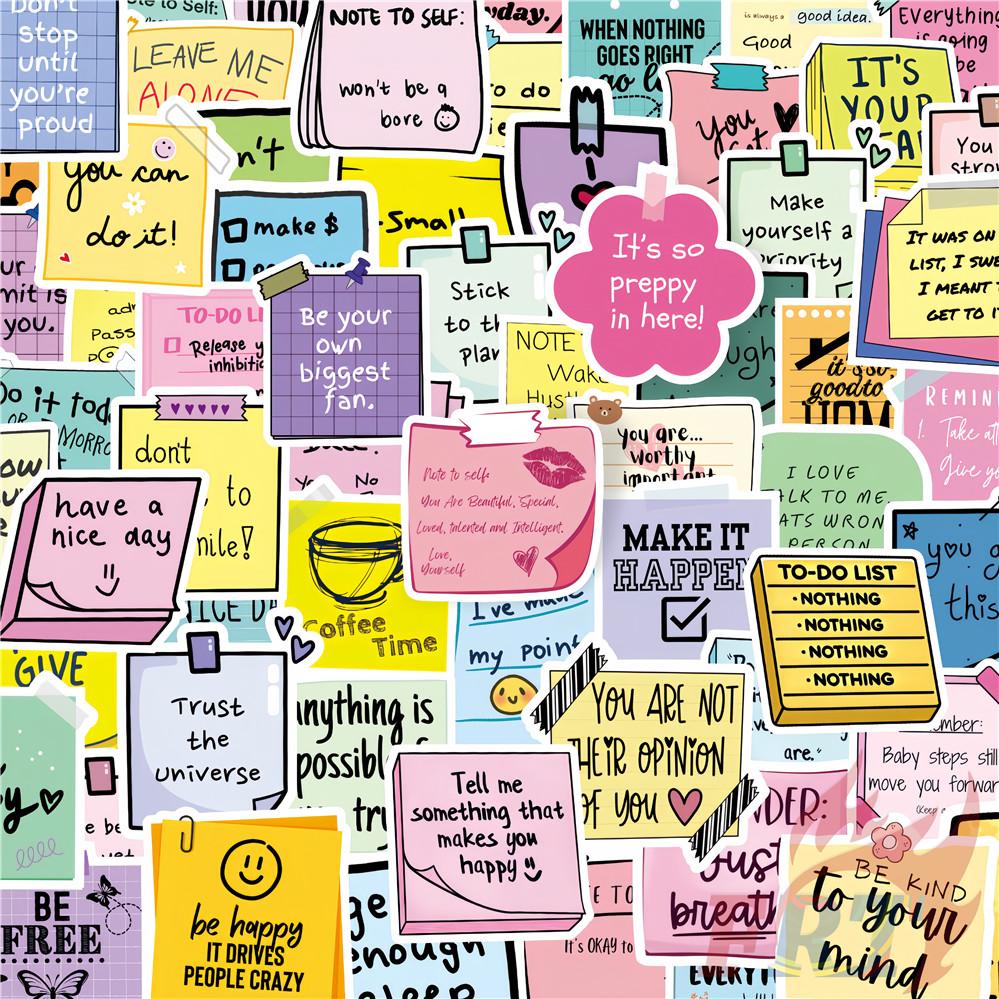 Don't
stop
until
you're
proud
LEAVE ME
ALONE
NOTE TO SELF:
won't be a
bore
WHEN NOTHING
GOES RIGHT
go
is always a good idea.
Good
Everything
is going
be
IT'S
YOUR
You
got
You
you can
do it!
n't
make $
Small
I
Make
yourself a
priority
IT WAS ON
LIST, I SWE
I MEANT
GET TO IT
It's so
preppy
in here!
Be your
own
biggest
fan.
Stick
to th
plan
mit is
you.
TO-DO LI
Release y
inhibitio
NOTE
Wake
Hustl
it's so
good to
HOME
REMIN
1. Take
Give yo
Do it tod
OR
don't
to
mile!
have a
nice day
No
you are...
worthy
important
I LOVE
ALK TO ME.
ATS WRON
PERSON
Note to self:
You Are Beautiful, Special,
Loved, talented and Intelligent.
Love,
Yourself
MAKE IT
HAPPEN
you g
this
TO-DO LIST
•NOTHING
•NOTHING
•NOTHING
•NOTHING
Coffee
Time
NICE DA
I've made
my point
GIVE
Trust
the
universe
anything is
possible
try
YOU ARE NOT
THEIR OPINION
OF YOU
are."
Baby steps still
move you forwar
Tell me
something that
makes you
happy
NDER:
Just
breath
BE KIND
to your
mind
BE
FREE
be happy
IT DRIVES
PEOPLE CRAZY
ge
enough
sleep
E TO
It's OKAY to
EVERYT